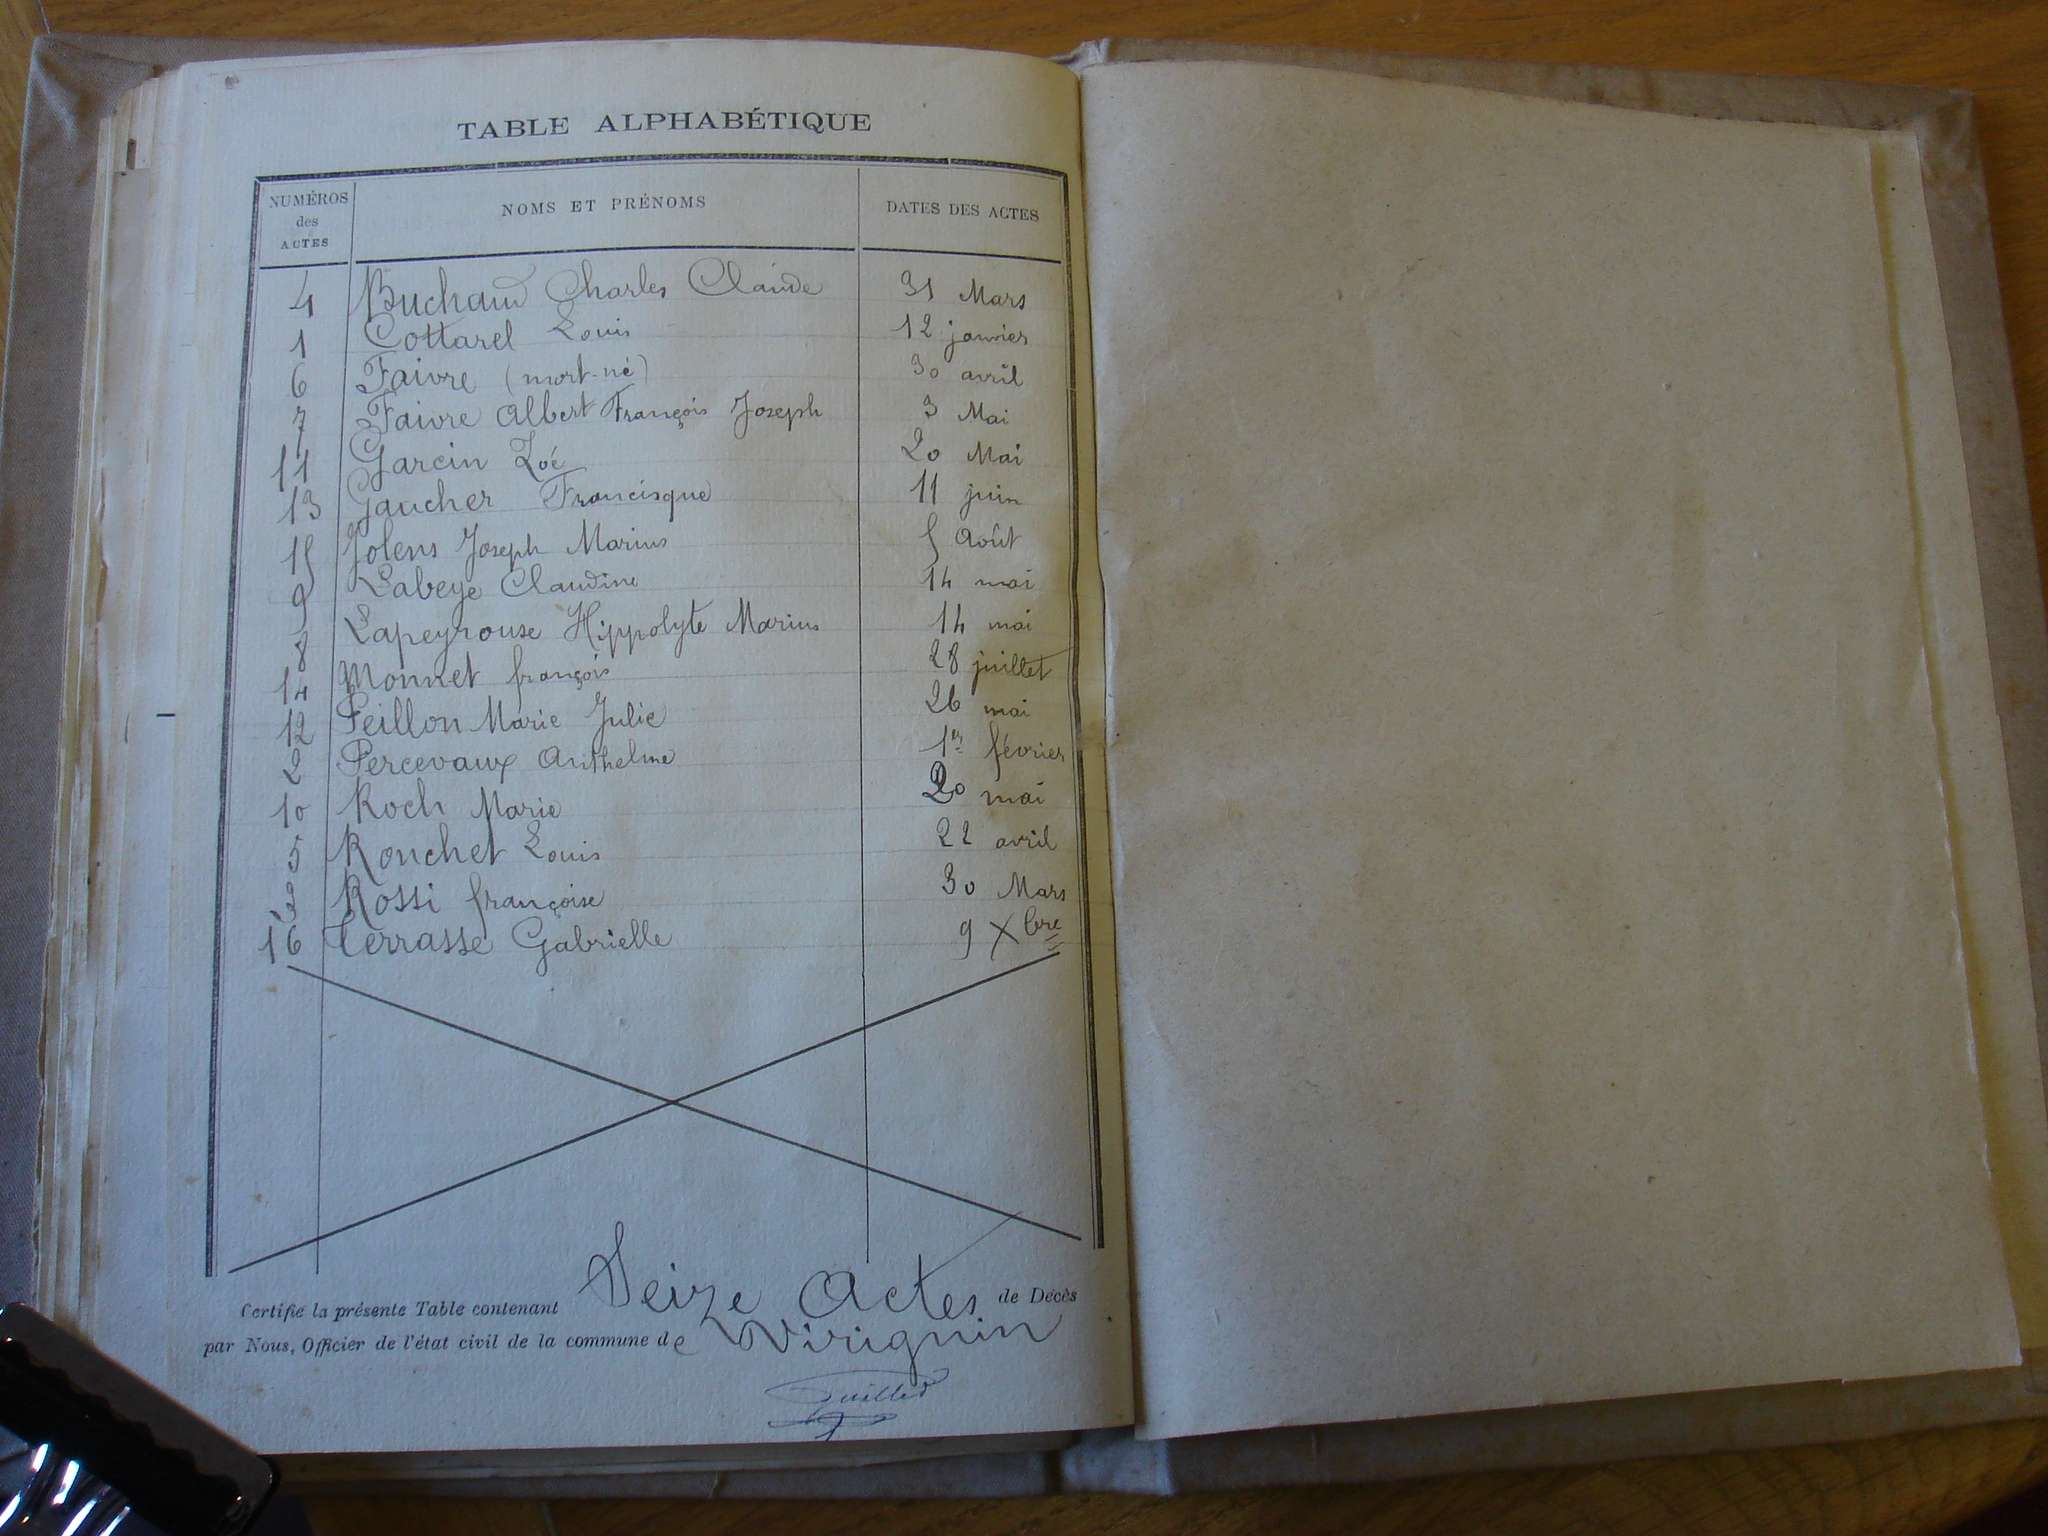 TABLE ALPHABÉTIQUE
NUMÉROS des ACTES NOMS ET PRÉNOMS DATES DES ACTES
4 Buchaud Charles Claude 31 Mars
1 Cottarel Louis 12 janvier
6 Faivre (mort-né) 30 avril
7 Faivre Albert François Joseph 3 Mai
11 Garcin Zoé 20 Mai
13 Gaucher Francisque 11 juin
15 Jolens Joseph Marius 5 Août
9 Labeye Claudine 14 mai
8 Lapeyrouse Hippolyte Marius 14 mai
14 Monnet françois 28 juillet
12 Peillon Marie Julie 26 mai
2 Percevaux Anthelme 1er février
10 Roch Marie 20 mai
5 Ronchet Louis 22 avril
Rossi françoise 30 Mars
16 Terrasse Gabrielle 9 Xbre
Certifie la présente Table contenant Seize Actes de Décès
par Nous, Officier de l'état civil de la commune de Virignin